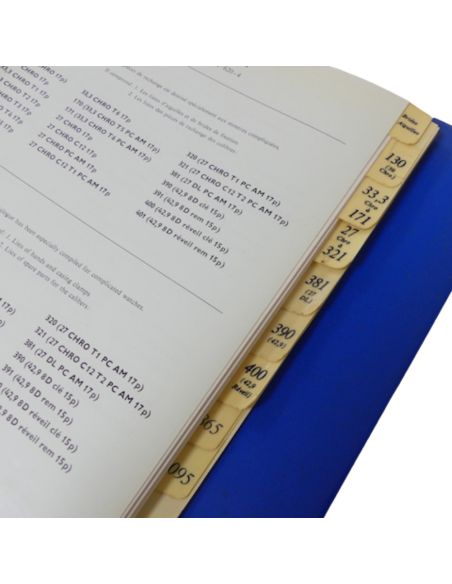 620-4
de rechange est destiné spécialement aux montres compliquées.
Il comprend: 1. Les listes d'aiguilles et de brides de fixation.
2. Les listes des pièces de rechange des calibres:
CHRO 17p)
33,3 CHRO T6 17p
170 (33,3 CHRO T5 PC AM 17p)
171 (33,3 CHRO T6 PC AM 17p)
27 CHRO 17p
27 CHRO PC AM 17p
27 CHRO C12 17p
320 (27 CHRO T1 PC AM 17p)
321 (27 CHRO C12 T2 PC AM 17p)
381 (27 DL PC AM 17p)
390 (42,9 8D clé 15p)
391 (42,9 8D rem 15p)
400 (42,9 8D réveil clé 15p)
401 (42,9 8D réveil rem 15p)
has been specially compiled for complicated watches.
1. Lists of hands and casing clamps
2. Lists of spare parts for the calibers:
320 (27 CHRO T1 PC AM 17p)
321 (27 CHRO C12 T2 PC AM 17p)
381 (27 DL PC AM 17p)
390 (42,9 8D clé 15p)
391 (42,9 8D rem 15p)
(42,9 8D réveil clé 15p)
8D réveil rem 15p)
Brides
Aiguilles
130
Chro.)
33.3
Chro
à
171
27
Chro
à
321
381
(27
DL)
390
(42,9)
400
(42,9
Réveil)
865
095